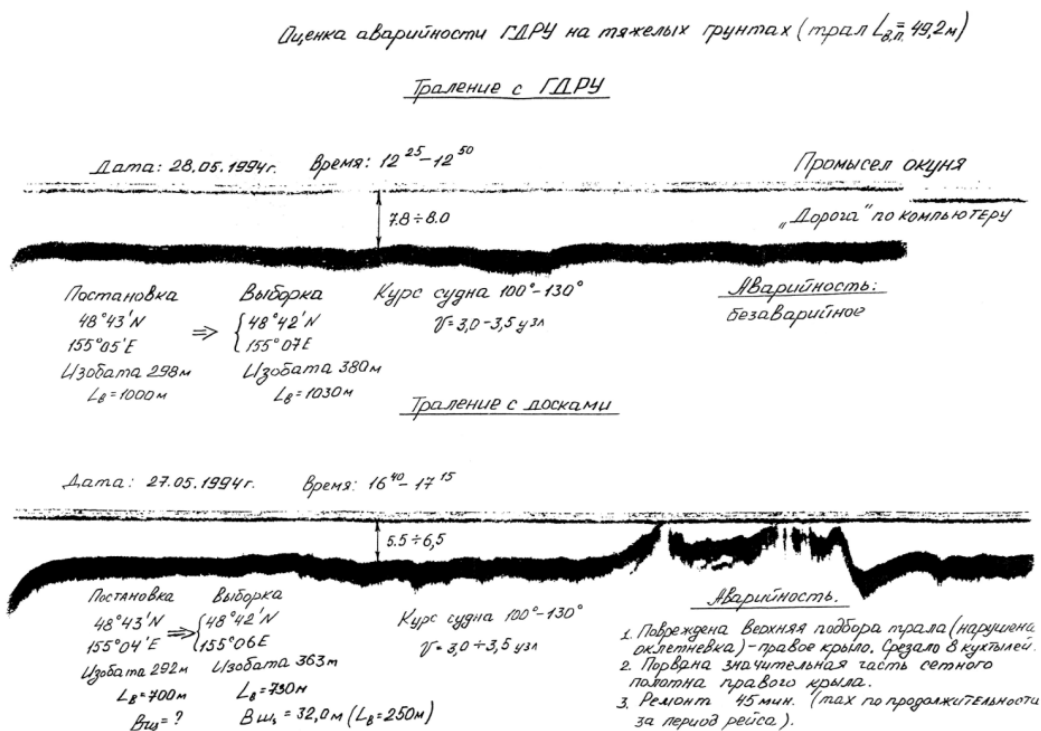 Оценка аварийности ГДРУ на тяжелых грунтах (трал Lв.п. = 49,2м)
Траление с ГДРУ
Дата: 28.05.1994г. Время: 12 25 – 12 50
Промысел окуня
7.8 ÷ 8.0
„Дорога" по компьютеру
Постановка
48°43'N
155°05'E
Изобата 298м
Lв = 1000м
⇒
Выборка
{ 48°42'N
155°07E
Изобата 380м
Lв = 1030м
Курс судна 100°-130°
V = 3,0-3,5 узл
Аварийность:
безаварийное
Траление с досками
Дата: 27.05.1994г. Время: 16 40 – 17 15
5.5 ÷ 6,5
Постановка
48°43'N
155°04'E
Изобата 292м
Lв = 700м
Вщ = ?
⇒
Выборка
{ 48°42'N
155°06E
Изобата 363м
Lв = 730м
Вщ = 32,0м (Lв = 250м)
Курс судна 100°-130°
V = 3,0 ÷ 3,5 узл
Аварийность.
1. Повреждена верхняя подбора трала (нарушена
оклетневка) – правое крыло. Срезало 8 кухтылей.
2. Порвана значительная часть сетного
полотна правого крыла.
3. Ремонт 45 мин. (max по продолжительности
за период рейса).